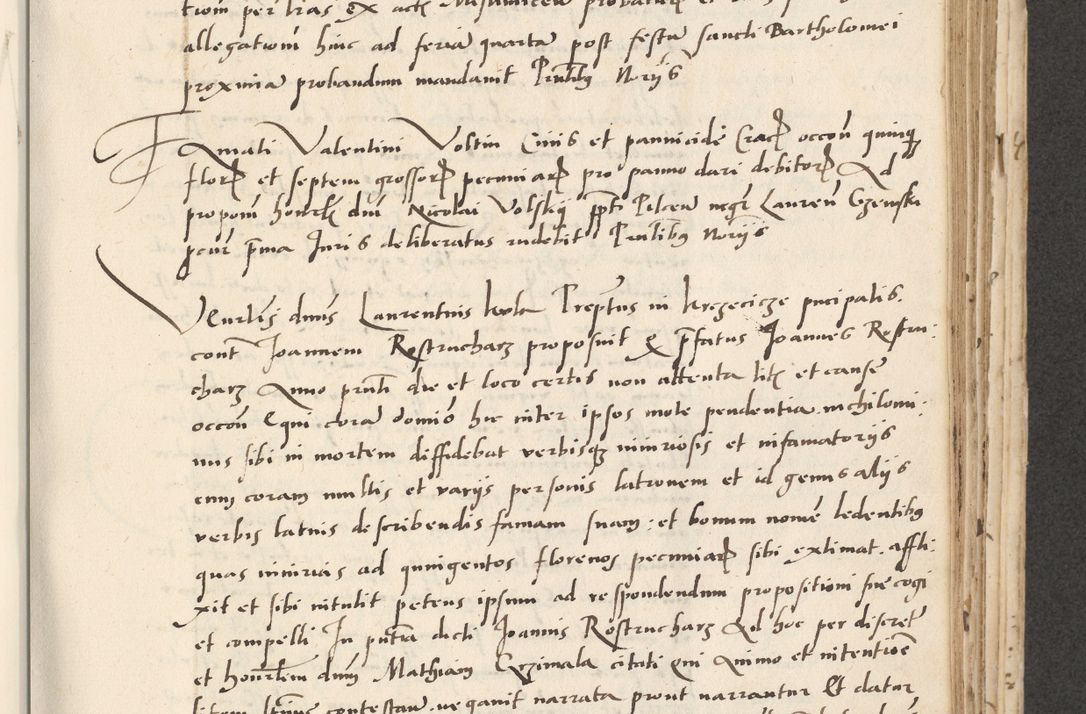 tiom per lras ex actis
allegationi hinc ad feria quarta post festu sancti Bartholomei
proxima probandum mandavit Pntibus Noriis
Amati Valentini Voltin Civis et pannicide Crac occon quinq
flor et septem grossor pecuniar pro panno dari debitor Ad
propoim honorlis dni Nicolai Volskij ppti Pilcen negr Lauren Gzewski
pcur pma Juris deliberatus rndebit Pntibus Noriis
Venrlis dnus Laurentius Prepttus in krzecicze pncipalis.
cont Joannem Rostrucharz proposuit Q pfatus Joannes Rostru:
charz Anno pnti die et loco certis non attenta litis et cause
occon Equi cora domio hic inter ipsos mote pendentia nichilomi:
nus sibi in mortem diffidebat verbisq iniuriosis et infamatoriis
eum coram multis et variis personis latronem et id genus aliis
verbis latius describendis famam suam: et bonum nome ledentibus
quas iniurias ad quingentos florenos pecuniar sibi extimat. affli:
xit et sibi intulit petens ipsum ad respondendum propositioni sue cogi
et compelli In pntia dicti Joannis Rostrucharz Ad hoc per discret
et honorlem dnum Mathiam Grzimala citati qui Animo et intentione
litem contestan. negavit narrata prout narrantur Et datur